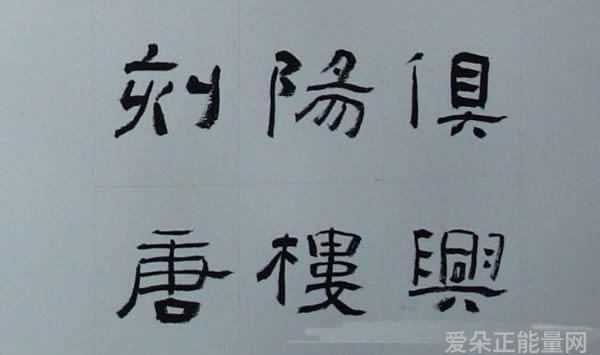 俱興
陽樓
刻唐
爱朵正能量网